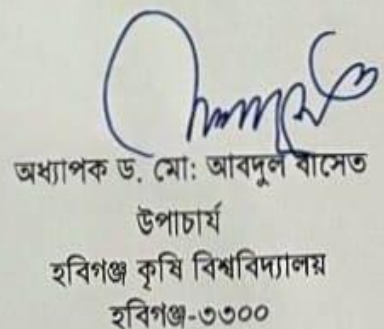 অধ্যাপক ড. মো: আবদুল বাসেত
উপাচার্য
হবিগঞ্জ কৃষি বিশ্ববিদ্যালয়
হবিগঞ্জ-৩৩০০